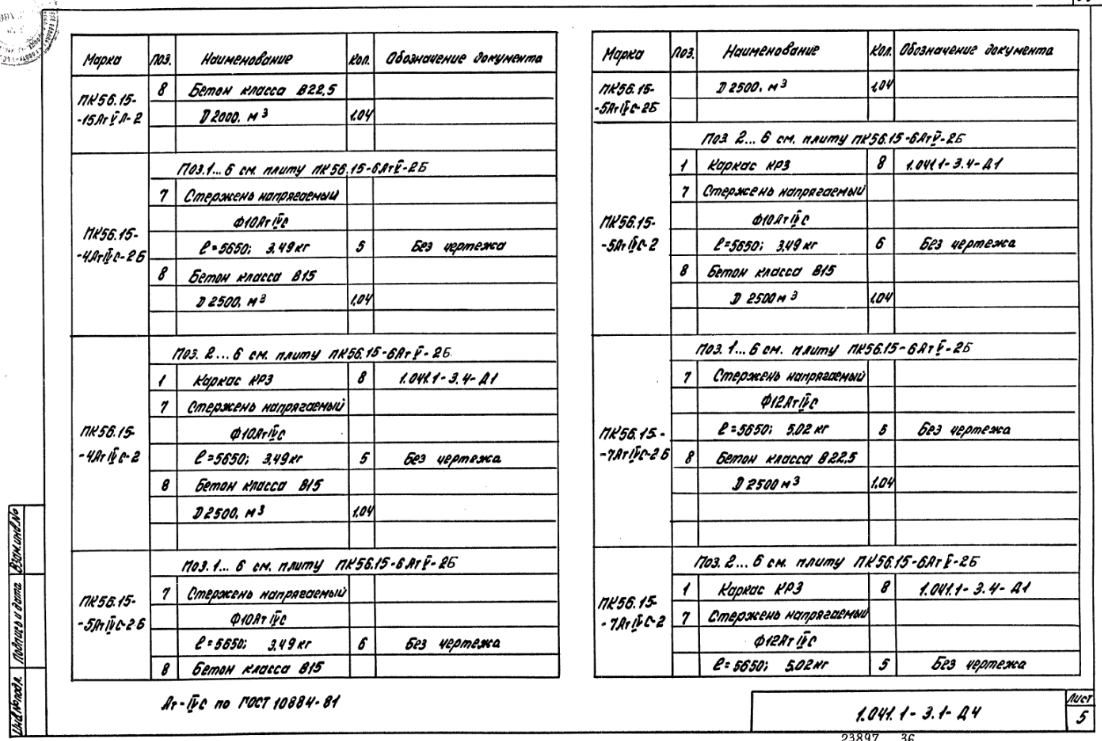 Марка Поз. Наименование Кол. Обозначение документа
ПК56.15-
-15АтV Л-2
8 Бетон класса В22,5
D 2000, м3 1,04
Поз.1... 6 см. плиту ПК56.15-6АтV-2Б
ПК56.15-
-4АтIVС-2Б
7 Стержень напрягаемый
Ф10АтIVС
ℓ=5650; 3,49 кг 5 Без чертежа
8 Бетон класса В15
D 2500, м3 1,04
Поз. 2... 6 см. плиту ПК56.15-6АтV-2Б
ПК56.15-
-4АтIVС-2
1 Каркас КР3 8 1.041.1-3.4-Д1
7 Стержень напрягаемый
Ф10АтIVС
ℓ=5650; 3,49кг 5 Без чертежа
8 Бетон класса В15
D 2500, м3 1,04
Поз. 1... 6 см. плиту ПК56.15-6АтV-2Б
ПК56.15-
-5АтIVС-2Б
7 Стержень напрягаемый
Ф10АтIVС
ℓ=5650; 3,49 кг 6 Без чертежа
8 Бетон класса В15
Ат-IVС по ГОСТ 10884-81
Марка Поз. Наименование Кол. Обозначение документа
ПК56.15-
-5АтIVС-2Б
D 2500, м3 1,04
Поз. 2... 6 см. плиту ПК56.15-6АтV-2Б
ПК56.15-
-5АтIVС-2
1 Каркас КР3 8 1.041.1-3.4-Д1
7 Стержень напрягаемый
Ф10АтIVС
ℓ=5650; 3,49 кг 6 Без чертежа
8 Бетон класса В15
D 2500 м3 1,04
Поз. 1... 6 см. плиту ПК56.15-6АтV-2Б
ПК56.15-
-7АтIVС-2Б
7 Стержень напрягаемый
Ф12АтIVС
ℓ=5650; 5,02 кг 5 Без чертежа
8 Бетон класса В22,5
D 2500 м3 1,04
Поз. 2... 6 см. плиту ПК56.15-6АтV-2Б
ПК56.15-
-7АтIVС-2
1 Каркас КР3 8 1.041.1-3.4-Д1
7 Стержень напрягаемый
Ф12АтIVС
ℓ=5650; 5,02кг 5 Без чертежа
1.041.1-3.1-Д4
Лист
5
23897 36
Взам.инв.№
Подпись и дата
Инв.№подл.